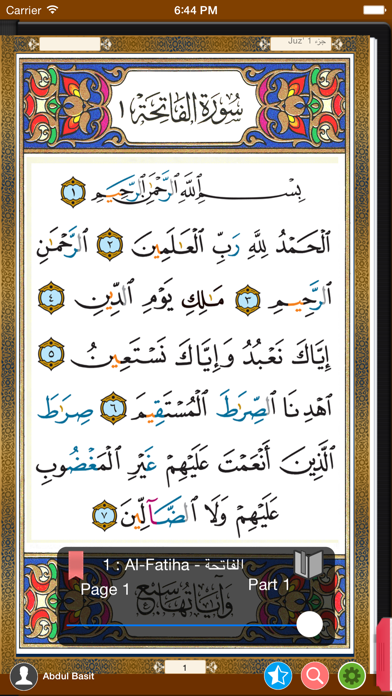 Carrier 6:44 PM
Juz' 1 جزء
سُورَةُ الْفَاتِحَةِ ١
بِسْمِ اللَّهِ الرَّحْمَٰنِ الرَّحِيمِ ١
الْحَمْدُ لِلَّهِ رَبِّ الْعَالَمِينَ ٢ الرَّحْمَٰنِ
الرَّحِيمِ ٣ مَالِكِ يَوْمِ الدِّينِ ٤
إِيَّاكَ نَعْبُدُ وَإِيَّاكَ نَسْتَعِينُ ٥
اهْدِنَا الصِّرَاطَ الْمُسْتَقِيمَ ٦ صِرَاطَ
الَّذِينَ أَنْعَمْتَ عَلَيْهِمْ غَيْرِ الْمَغْضُوبِ
عَلَيْهِمْ وَلَا الضَّآلِّينَ ٧
1 : Al-Fatiha - الفاتحة
Page 1 Part 1
وآياتها سبع
1
Abdul Basit